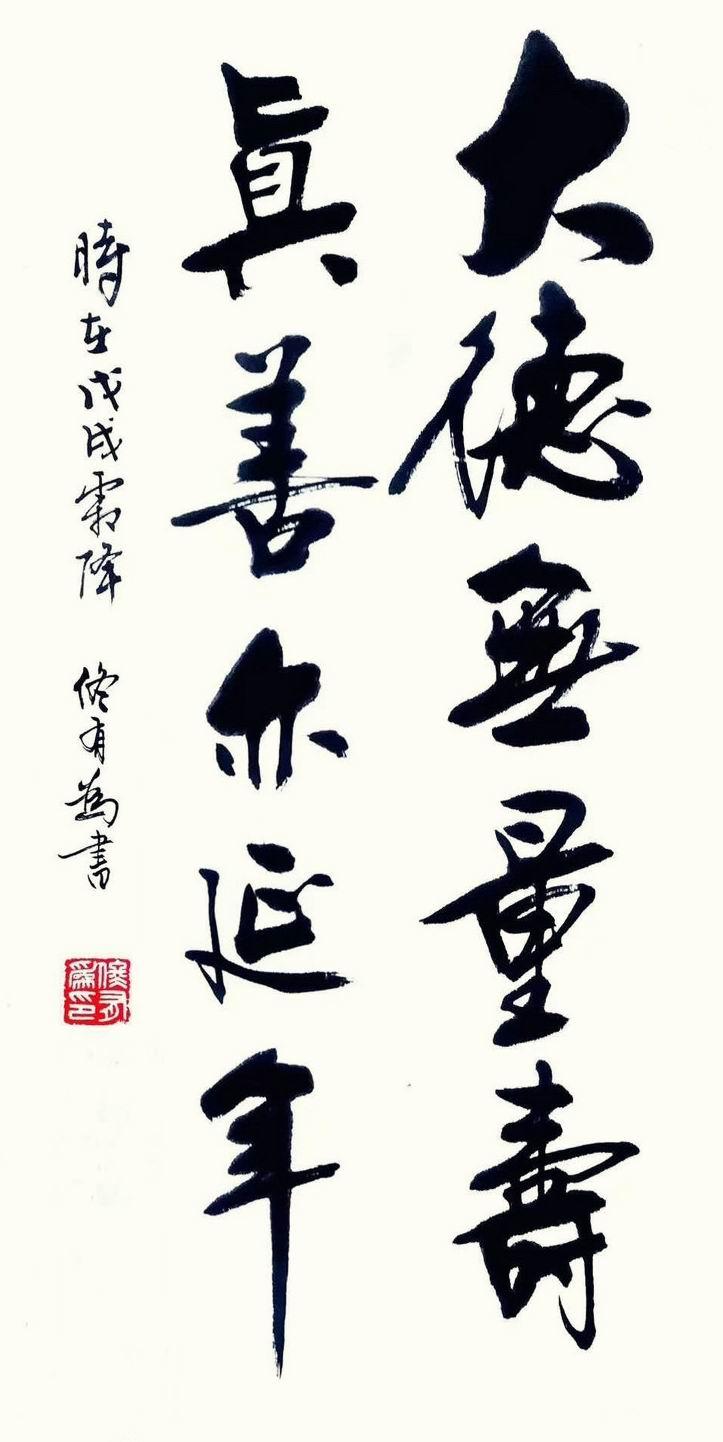 大德無量壽
真善亦延年
時在戊戌霜降 佟有為書
佟有為印